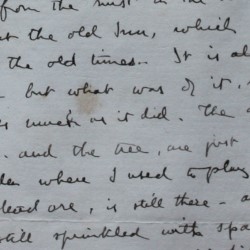 from the must in the
at the old Inn, which
the old times. It is al
- but what was of it,
s much as it did. The
. and the tree, are just
den where I used to play
lead are, is still there - a
Well sprinkled with spa